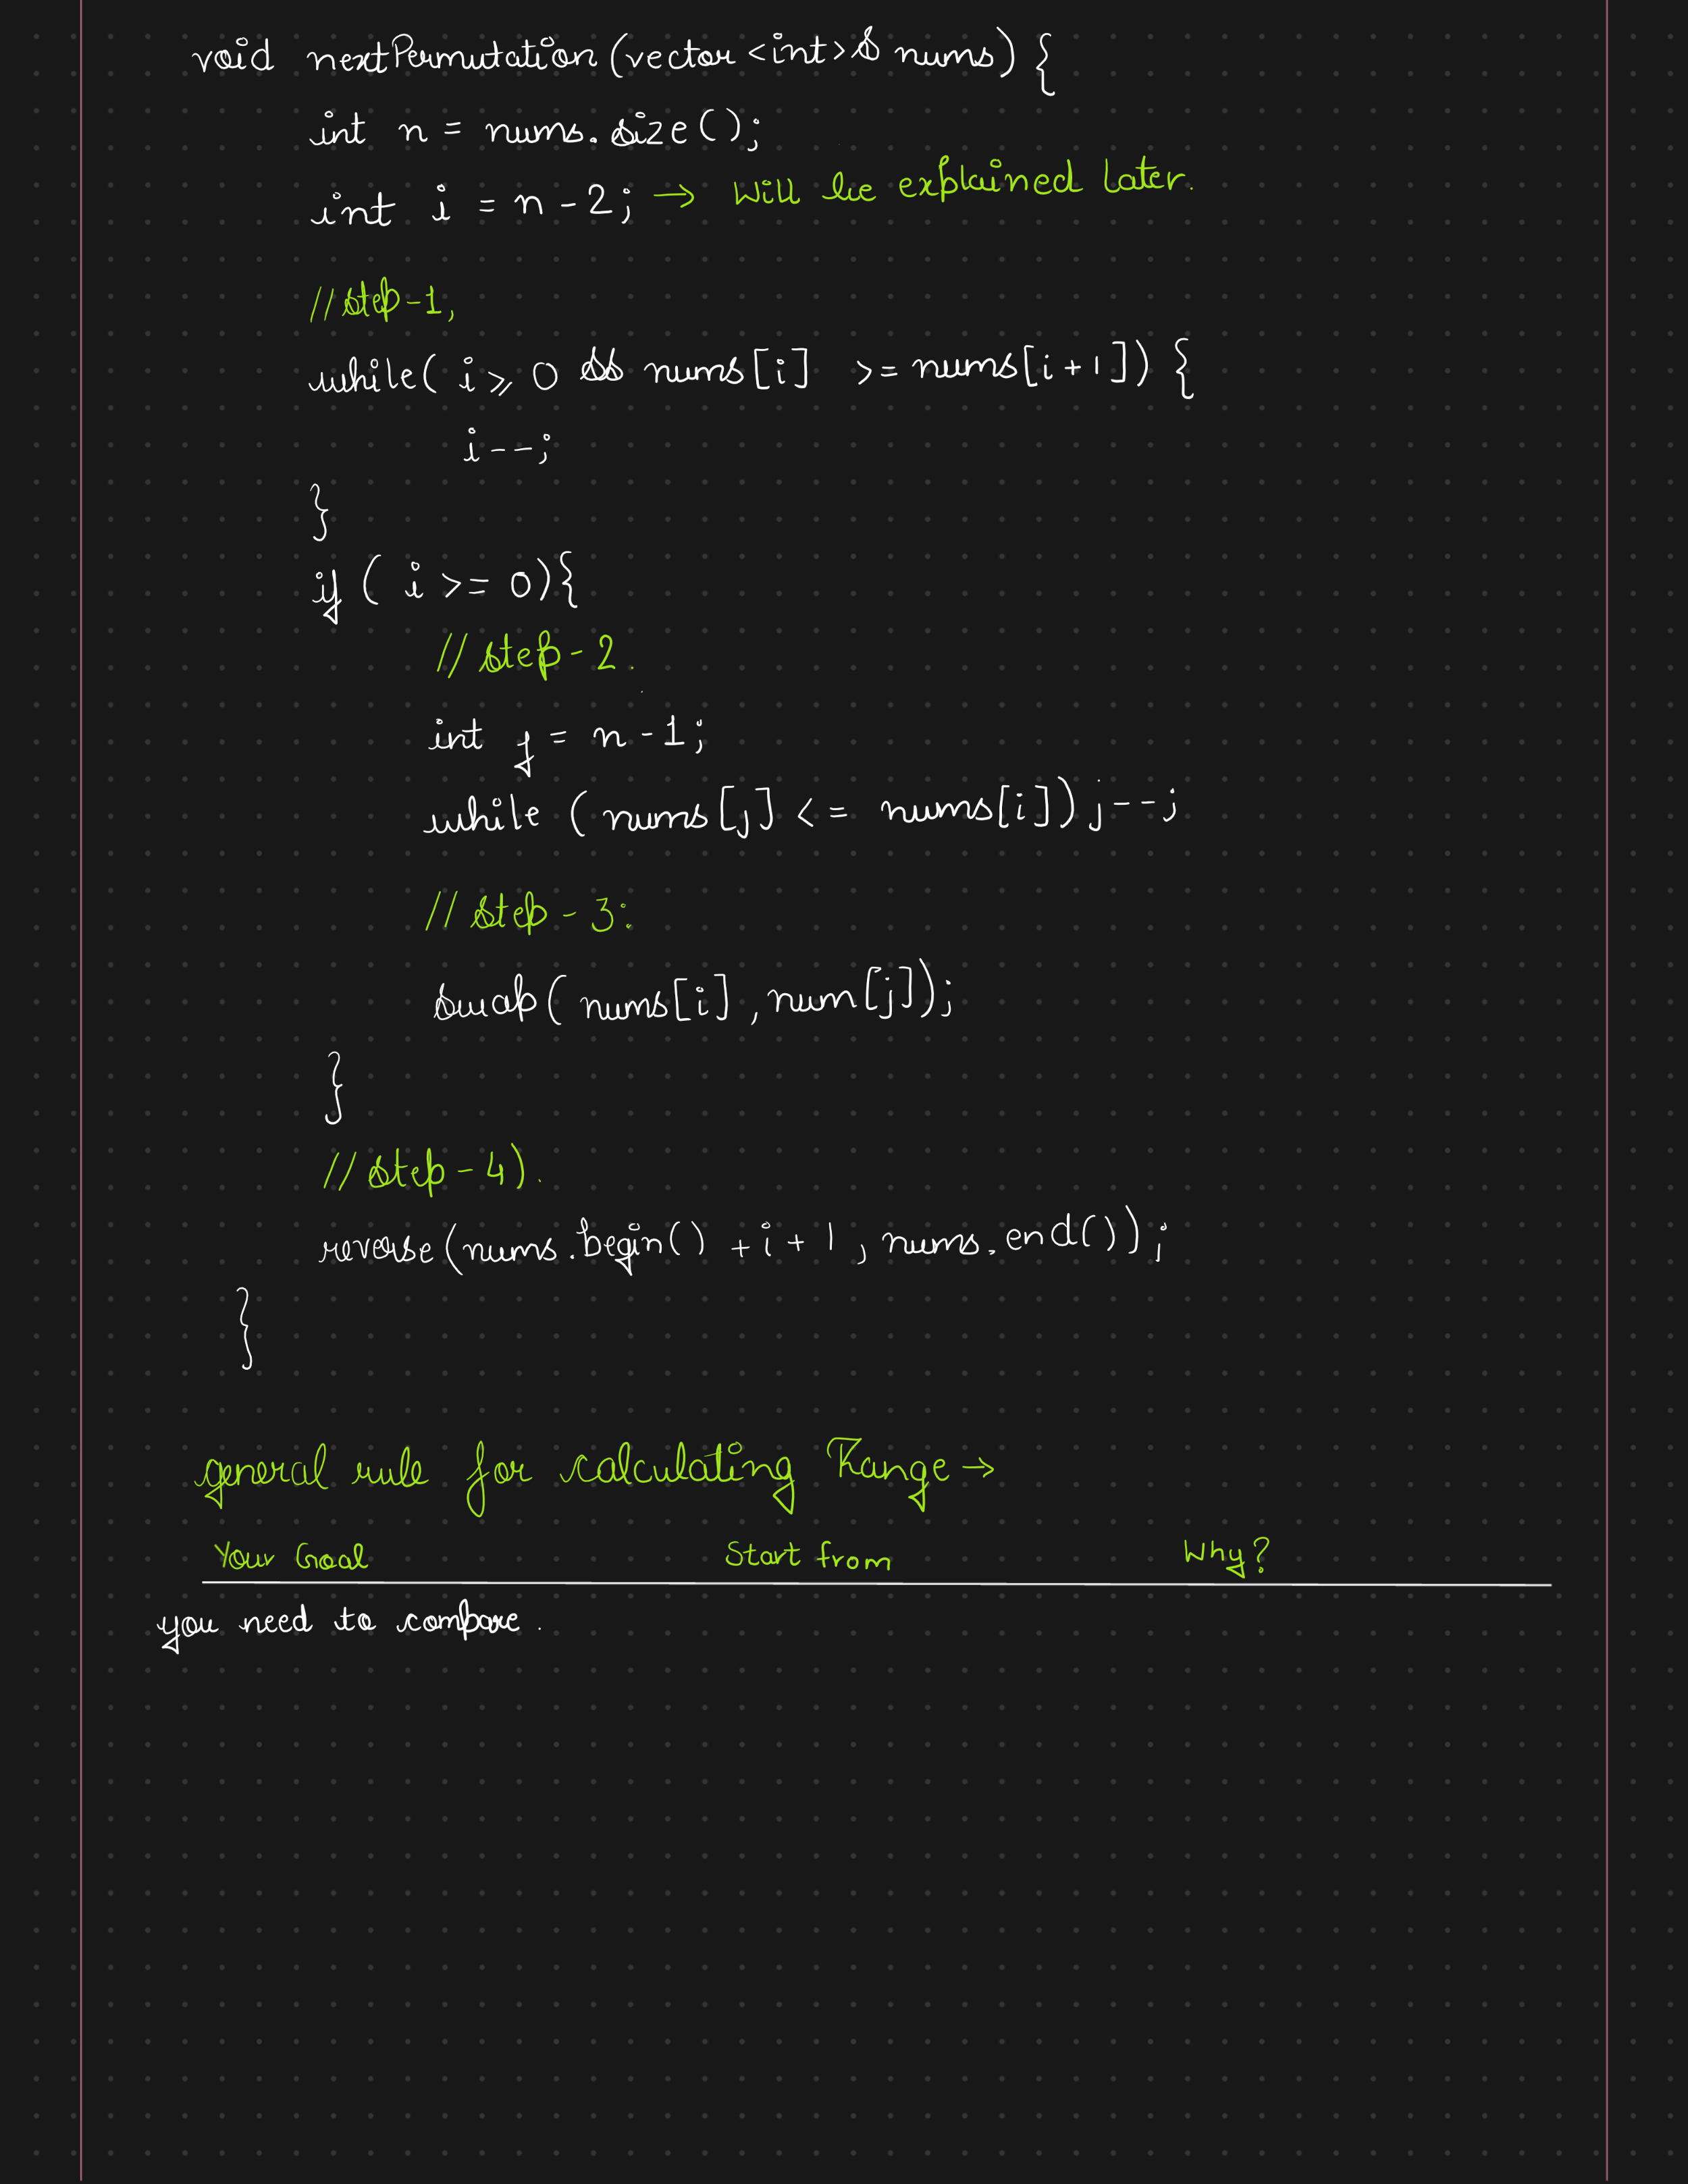 void nextPermutation (vector <int>& nums) {
int n = nums.size();
int i = n - 2; → Will be explained later.
//step-1,
while( i ⩾ 0 && nums[i] >= nums[i+1]) {
i--;
}
if ( i >= 0){
// step-2.
int j = n-1;
while (nums[j] <= nums[i]) j--;
// step-3:
swap( nums[i], num[j]);
}
// step-4).
reverse(nums.begin() + i + 1, nums.end());
}
general rule for calculating Range →
Your Goal Start from Why?
you need to compare.